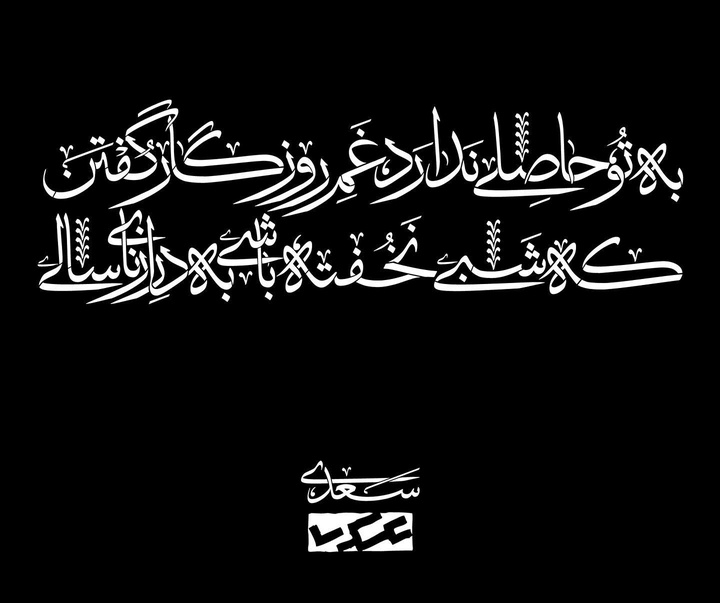 به تُو حاصِلی نَدارَد غَمِ روزگار گُفْتَن
که شَبی نَخُفته باشی به دِرازنایِ سالی
سَعدی